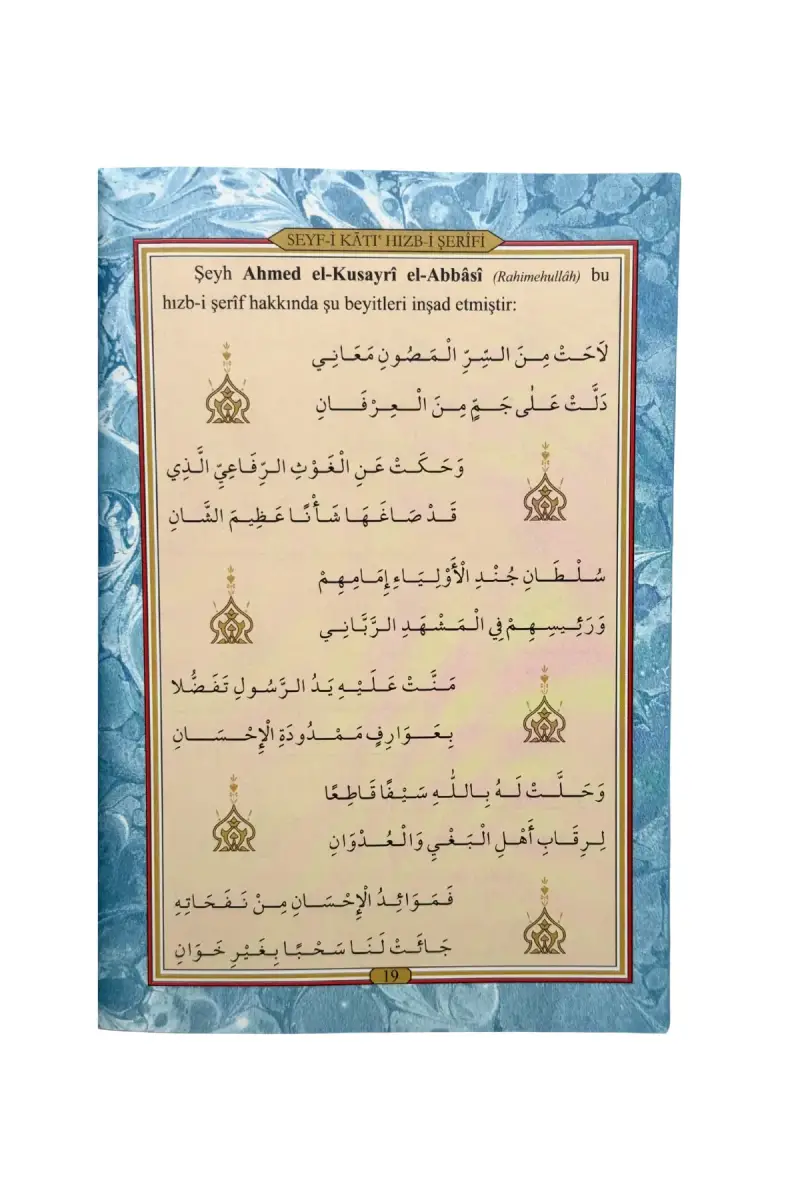 SEYF-İ KĀTI' HIZB-İ ŞERÎFİ
Şeyh Ahmed el-Kusayrî el-Abbâsî (Rahimehullâh) bu
hızb-i şerîf hakkında şu beyitleri inşad etmiştir:
لَاحَتْ مِنَ السِّرِّ الْمَصُونِ مَعَانِي
دَلَّتْ عَلٰى جَمٍّ مِنَ الْعِرْفَانِ
وَحَكَتْ عَنِ الْغَوْثِ الرِّفَاعِيِّ الَّذِي
قَدْ صَاغَهَا شَأْنًا عَظِيمَ الشَّانِ
سُلْطَانِ جُنْدِ الْأَوْلِيَاءِ إِمَامِهِمْ
وَرَئِيسِهِمْ فِي الْمَشْهَدِ الرَّبَّانِي
مَنَّتْ عَلَيْهِ يَدُ الرَّسُولِ تَفَضُّلًا
بِعَوَارِفٍ مَمْدُودَةِ الْإِحْسَانِ
وَحَلَّتْ لَهُ بِاللّٰهِ سَيْفًا قَاطِعًا
لِرِقَابِ أَهْلِ الْبَغْيِ وَالْعُدْوَانِ
فَمَوَائِدُ الْإِحْسَانِ مِنْ نَفَحَاتِهِ
جَائَتْ لَنَا سَحْبًا بِغَيْرِ خَوَانِ
19